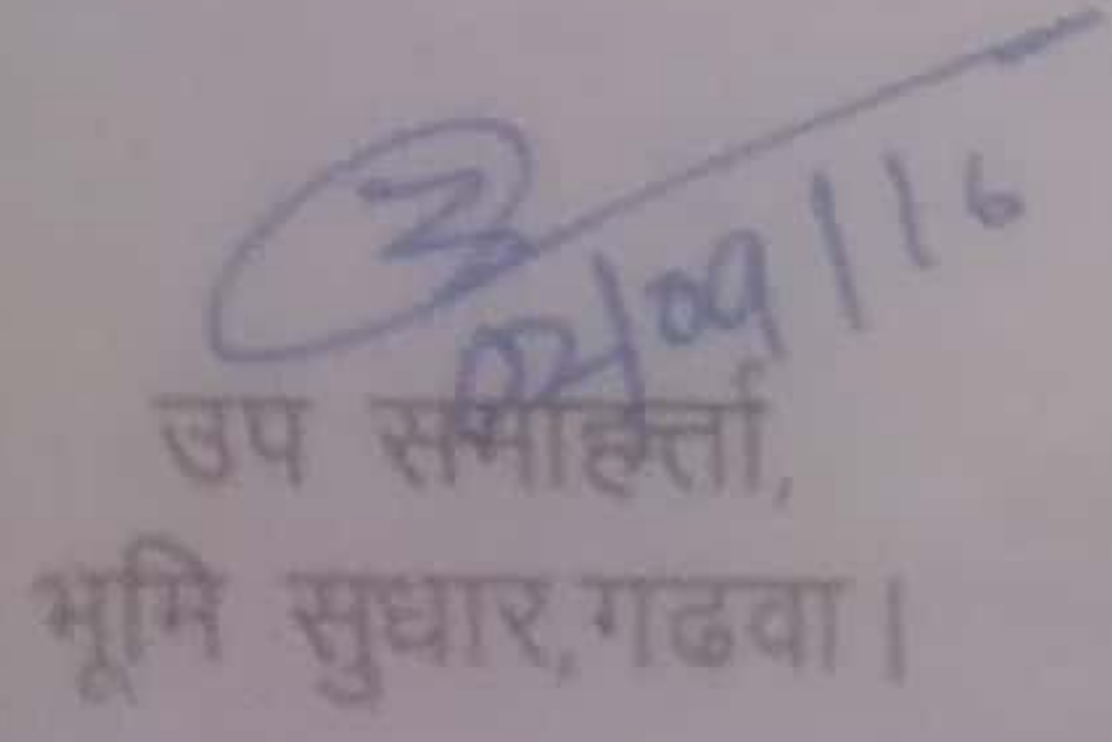 02/09/16
उप समाहर्त्ता,
भूमि सुधार,गढवा।